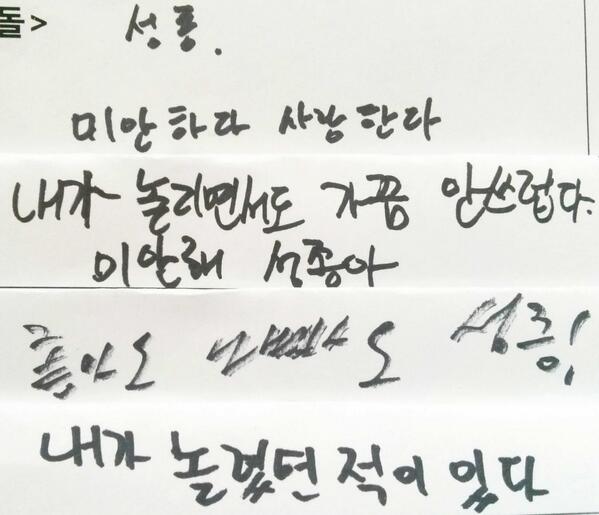 돌>
성종.
미안하다 사랑한다
내가 놀리면서도 가끔 안쓰럽다.
미안해 성종아
좋아도 나빠도 성종!
내가 놀렸던 적이 있다